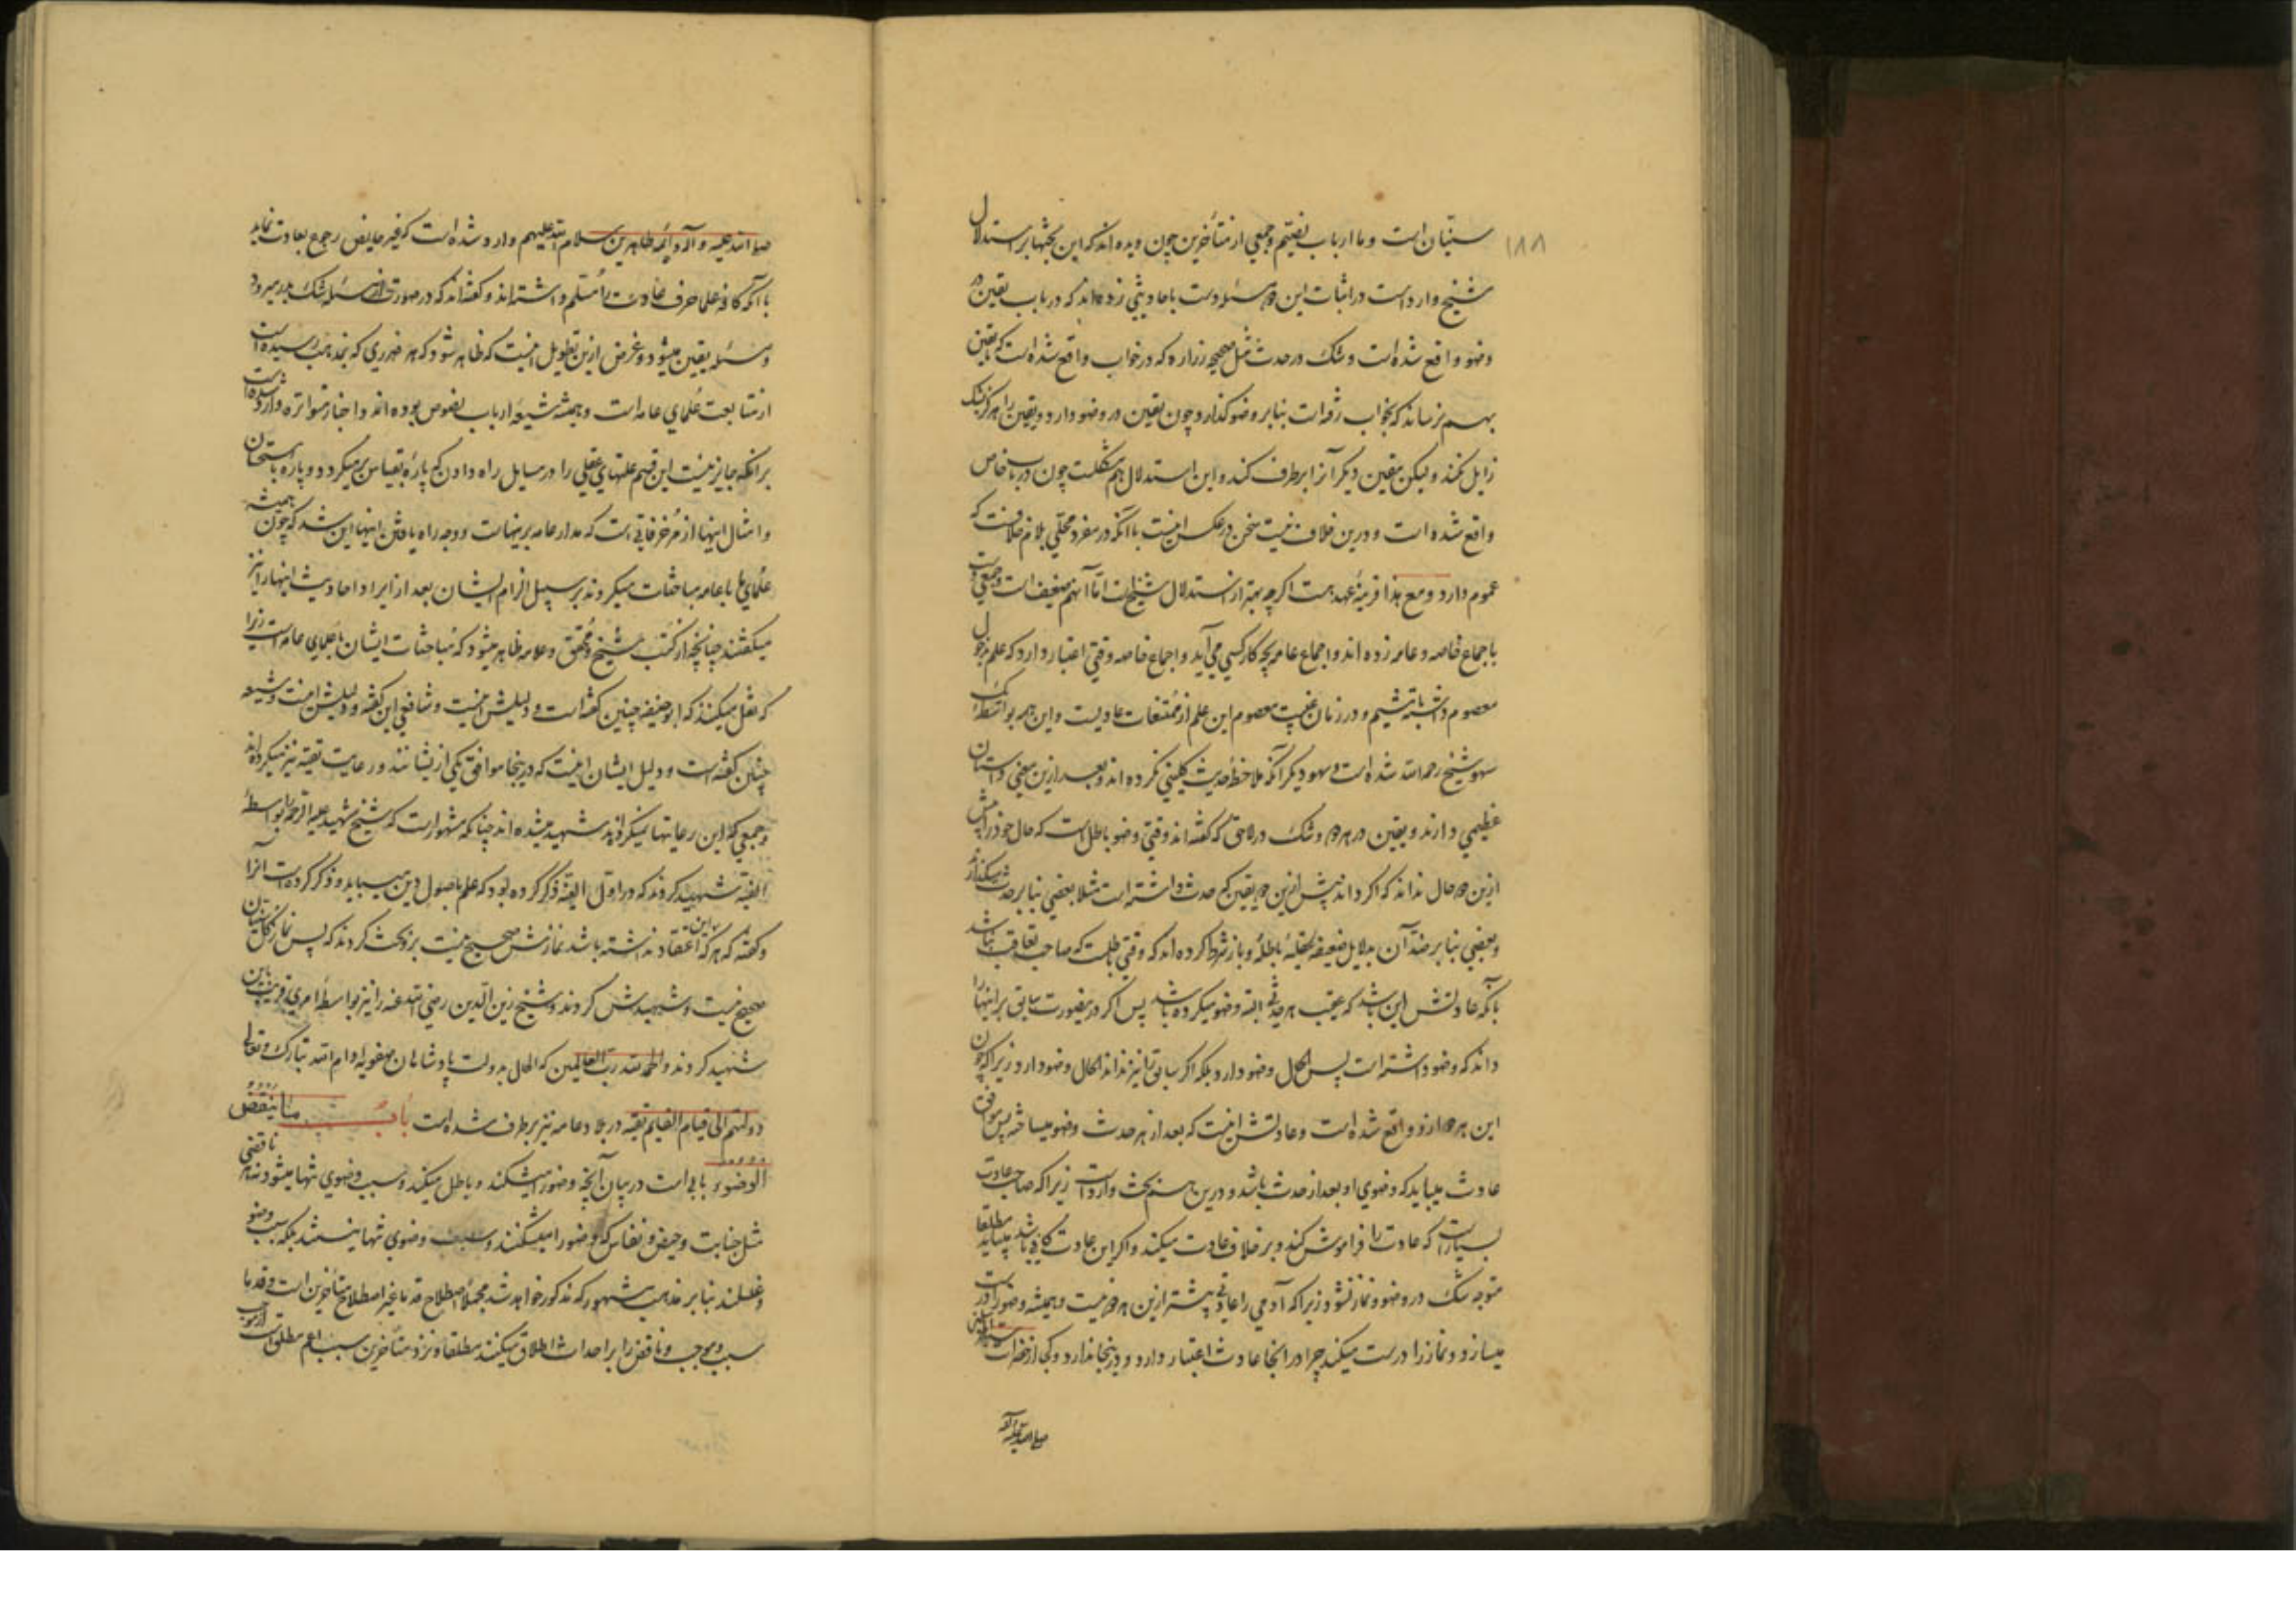 ۱۸۸
سنیان است و ما ارباب نصیم و جمعی از متأخرین چون دیده اند که این بحثها بر استدلال
شیخ وارد است در اثبات این دو مسئله دست باحادیثی زده اند که در باب یقین در
وضو واقع شده است و شک در حدث مثل صحیحه زراره که در خواب واقع شده است که تا یقین
بهم نرساند که بخواب رفته است بنا بر وضو گذارد چون یقین در وضو دارد و یقین را هرگز شک
زایل نمیکند و لیکن یقین دیگر آنرا برطرف کند و این استدلال هم مشکلست چون در باب خاص
واقع شده است و درین خلاف نیست سخن در عکس اینست با آنکه در مفرد محلی بلام خلافست که
عموم دارد و مع هذا قرینهٔ عهد هست اگرچه بهتر از استدلال شیخ است اما آنهم ضعیف است و جمعی دست
باجماع خاصه و عامه زده اند و اجماع عامه بچه کار کسی می آید و اجماع خاصه وقتی اعتبار دارد که علم بدخول
معصوم داشته باشیم و در زمان غیبت معصوم این علم از ممتنعات عادیست و این همه بواسطه آنکه
سهو شیخ رحمه الله شده است و سهو دیگر آنکه ملاحظهٔ حدیث کلینی نکرده اند و بعد ازین معنی داستان
عظیمی دارند و یقین در هر دو و شک در لاحق که گفته اند وقتی وضو باطل است که حال خود را پیش
ازین دو حال نداند که اگر داند پیش ازین دو یقین که حدث داشته است مثلا بعضی بنا بر حدث میگذارند
و بعضی بنا بر ضد آن بدلایل ضعیفه عقلیهٔ باطله و باز شرط کرده اند که وقتی باطلست که صاحب تعاقب نباشد
بآنکه عادتش این باشد که عقب هر حدثی البته وضو میکرده باشد پس اگر درینصورت سابق بر اینها را
داند که وضو داشته است پس الحال وضو دارد بلکه اگر سابق را نیز نداند الحال وضو دارد زیرا که چون
این هر دو ازو واقع شده است و عادتش اینست که بعد از هر حدث وضو میساخته پس موافق
عادت میباید که وضوی او بعد از حدث باشد و درین هم بحث وارد است زیرا که صاحب عادت
بسیار است که عادت را فراموش کند و بر خلاف عادت میکند و اگر این عادت کافی باشد میباید مطلقا
متوجه شک در وضو و نماز نشود زیرا که آدمی را عادتی پیشتر ازین هر دو نیست و همیشه وضو را درست
میسازد و نماز را درست میکند چرا در انجا عادت اعتبار دارد و درینجا ندارد و کی از حضرات سید المرسلین
صلی الله علیه و آله
صلی الله علیه و آله و ائمه طاهرین سلام الله علیهم وارد شده است که غیر حایض رجوع بعادت نماید
با آنکه کافهٔ علما حرف عادت را مسلم داشته اند و گفته اند که در صورت تعاقب از مسئله شک بدر میرود
و مسئله یقین میشود و غرض ازین تطویل اینست که ظاهر شود که هر ضرری که بمذهب رسیده است
از متابعت علمای عامه است و همیشه شیعه ارباب نصوص بوده اند و اخبار متواتره وارد شده است
بر انکه جایز نیست این قسم علتهای عقلی را در مسایل راه دادن که پارهٔ بقیاس بر میگردد و پارهٔ باستحسان
و امثال اینها از مزخرفاتی است که مدار عامه برینهاست و وجه راه یافتن اینها این شد که چون همیشه
علمای ما با عامه مباحثات میکردند بر سبیل الزام ایشان بعد از ایراد احادیث اینها را نیز
میگفتند چنانچه از کتب شیخ و محقق و علامه ظاهر میشود که مباحثات ایشان با علمای عامه است زیرا
که نقل میکنند که ابو حنیفه چنین گفته است و دلیلش اینست و شافعی این گفته و دلیلش اینست و شیعه
چنین گفته است و دلیل ایشان اینست که درینجا موافق یکی ازیشانند و رعایت تقیه نیز میکرده اند
و جمعی که این رعایتها نمیکردند شهید میشده اند چنانکه مشهور است که شیخ شهید علیه الرحمه را بواسطهٔ
الفیه شهید کردند که در اول الفیه ذکر کرده بود که علم باصول دین میباید و ذکر کرده است آنرا
و گفته که هر که باین اعتقاد نداشته باشد نمازش صحیح نیست برو بحث کردند که پس نماز کل سنیان
صحیح نیست و شهیدش کردند و شیخ زین الدین رضی الله عنه را نیز بواسطهٔ امری قریب باین
شهید کردند و الحمد لله رب العالمین که الحال بدولت پادشاهان صفویه ادام الله تبارک و تعالی
دولتهم الی قیام القایم تقیه در بلاد عامه نیز برطرف شده است باب ما ینقض
الوضوء بابی است در بیان آنچه وضو را میشکند و باطل میکند و سبب وضوی تنها میشود نه ناقضی
مثل جنابت و حیض و نفاس که وضو را میشکنند و سبب وضوی تنها نیستند بلکه سبب وضو
و غسلند بنا بر مذهب مشهور که مذکور خواهد شد مجملا اصطلاح قدما غیر اصطلاح متأخرین است و قدما
سبب و موجب و ناقض را بر احداث اطلاق میکنند مطلقا و نزد متأخرین سبب اعم مطلق است از موجب